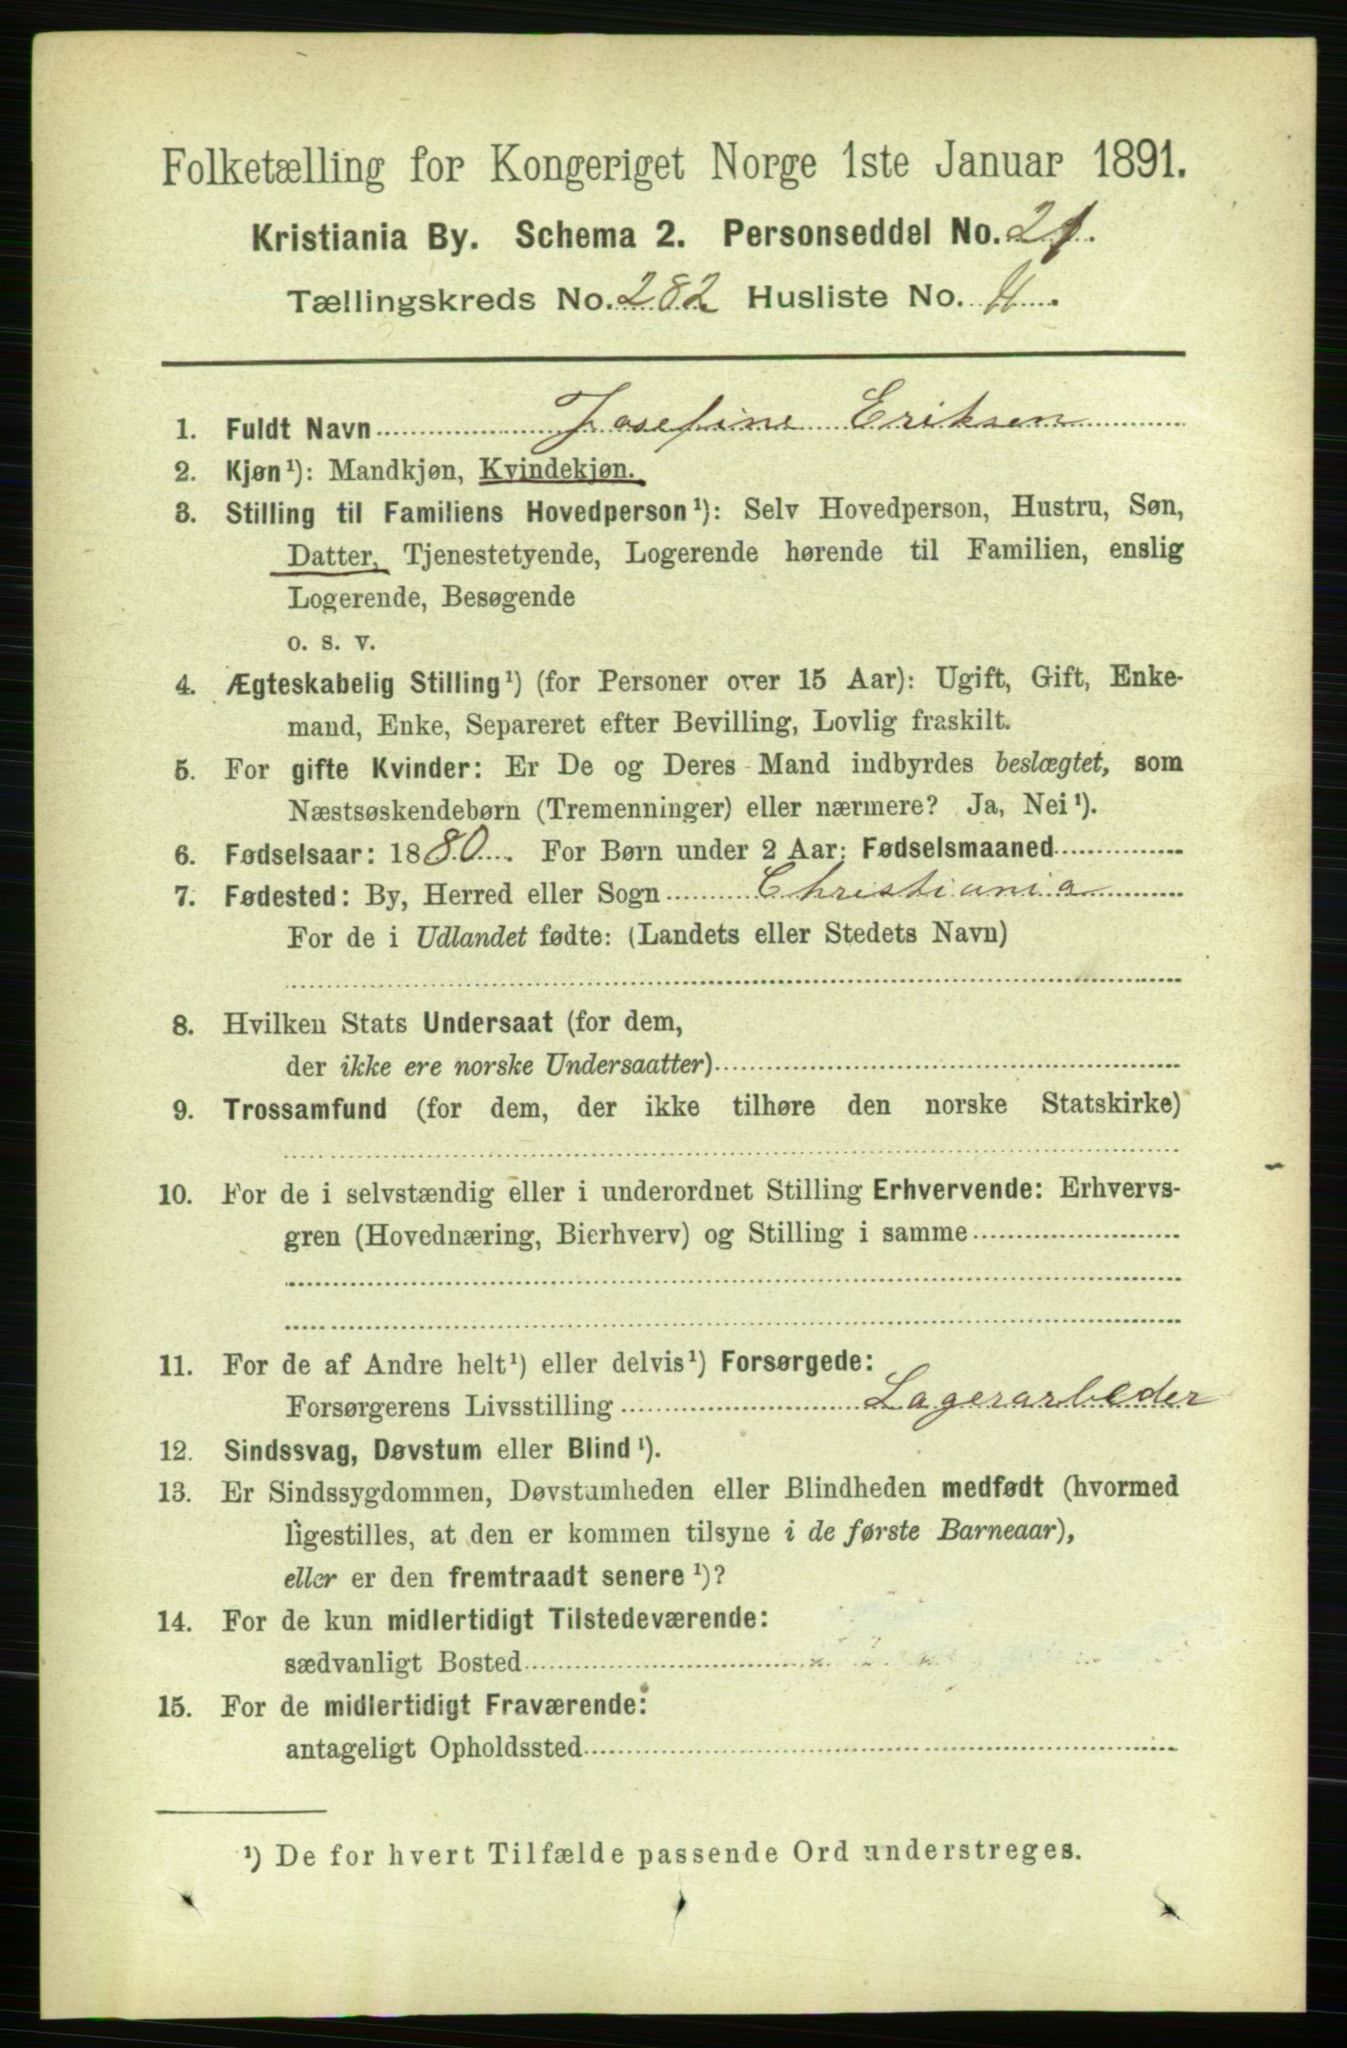 Folketælling for Kongeriget Norge 1ste Januar 1891.
Kristiania By. Schema 2. Personseddel No. 21.
Tællingskreds No. 282 Husliste No. 4.
1. Fuldt Navn Josefine Eriksen
2. Kjøn¹): Mandkjøn, Kvindekjøn.
3. Stilling til Familiens Hovedperson¹): Selv Hovedperson, Hustru, Søn,
Datter, Tjenestetyende, Logerende hørende til Familien, enslig
Logerende, Besøgende
o. s. v.
4. Ægteskabelig Stilling¹) (for Personer over 15 Aar): Ugift, Gift, Enke-
mand, Enke, Separeret efter Bevilling, Lovlig fraskilt.
5. For gifte Kvinder: Er De og Deres Mand indbyrdes beslægtet, som
Næstsøskendebørn (Tremenninger) eller nærmere? Ja, Nei¹).
6. Fødselsaar: 1880. For Børn under 2 Aar: Fødselsmaaned
7. Fødested: By, Herred eller Sogn Christiania
For de i Udlandet fødte: (Landets eller Stedets Navn)
8. Hvilken Stats Undersaat (for dem,
der ikke ere norske Undersaatter)
9. Trossamfund (for dem, der ikke tilhøre den norske Statskirke)
10. For de i selvstændig eller i underordnet Stilling Erhvervende: Erhvervs-
gren (Hovednæring, Bierhverv) og Stilling i samme
11. For de af Andre helt¹) eller delvis¹) Forsørgede:
Forsørgerens Livsstilling Lagerarbeder
12. Sindssvag, Døvstum eller Blind¹).
13. Er Sindssygdommen, Døvstumheden eller Blindheden medfødt (hvormed
ligestilles, at den er kommen tilsyne i de første Barneaar),
eller er den fremtraadt senere¹)?
14. For de kun midlertidigt Tilstedeværende:
sædvanligt Bosted
15. For de midlertidigt Fraværende:
antageligt Opholdssted
¹) De for hvert Tilfælde passende Ord understreges.